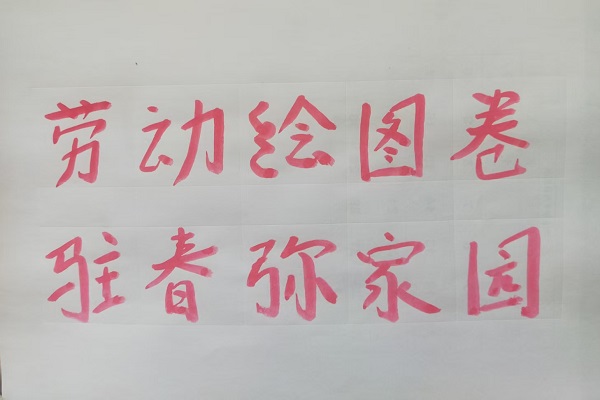 劳动绘图卷
驻春弥家园